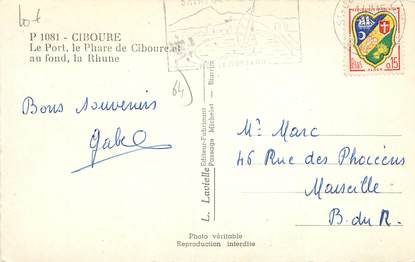 Lot
P 1081 - CIBOURE
Le Port, le Phare de Ciboure et
au fond, la Rhune
64)
Bons Souvenirs
Gabel
L. Lavielle
Editeur-Fabricant
Passage Michelet - Biarritz
Photo véritable
Reproduction interdite
ALGER
0,15
Mr Marc
46 Rue des Phocéens
Marseille
B. du R.